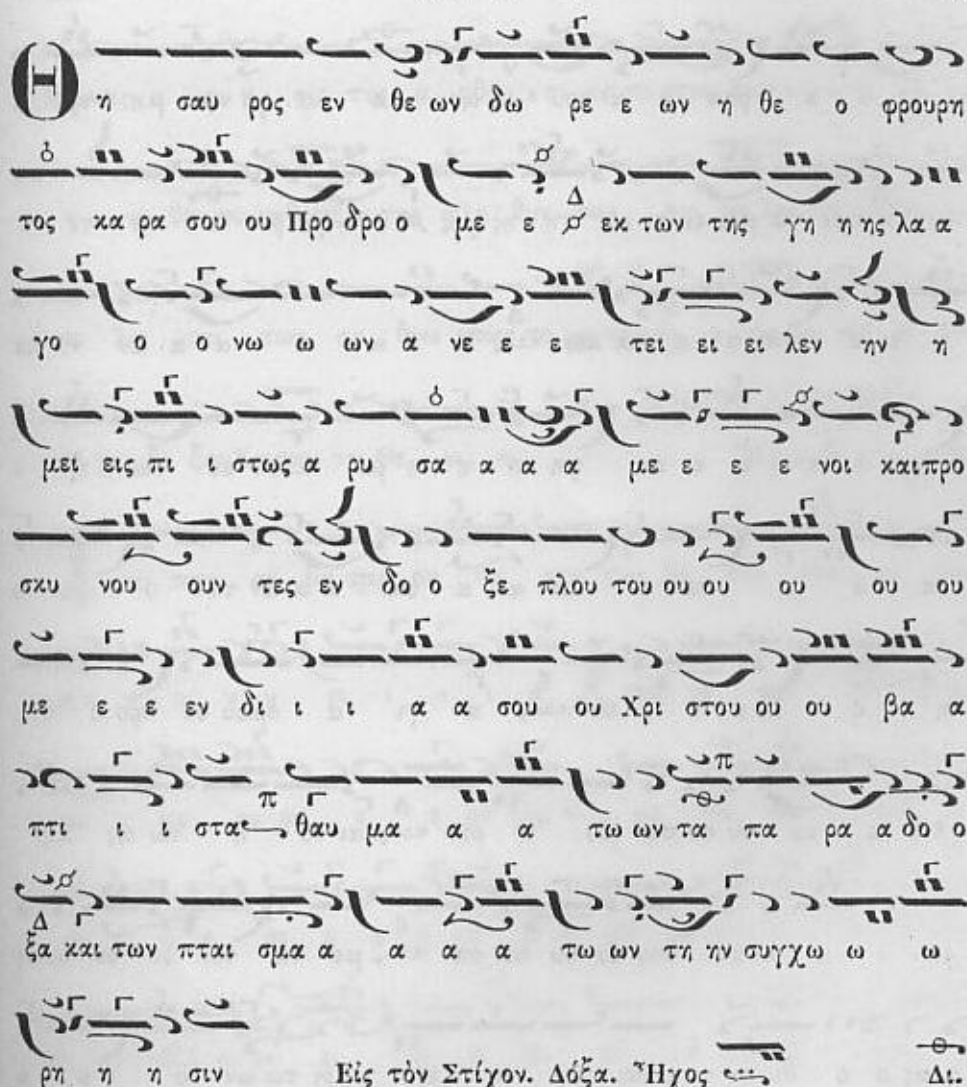 Θη σαυ ρος εν θε ων δω ρε ε ων η θε ο φρουρη
τος κα ρα σου ου Προ δρο ο με ε Δ εκ των της γη η ης λα α
γο ο ο νω ω ων α νε ε ε τει ει ει λεν ην η
μει εις πι ι στως α ρυ σα α α α με ε ε ε νοι και προ
σκυ νου ουν τες εν δο ο ξε πλου του ου ου ου ου ου
με ε ε εν δι ι ι α α σου ου Χρι στου ου ου βα α
πτι ι ι στα π θαυ μα α α τω ων τα πα ρα α δο ο
ξα Δ και των πται σμα α α α α τω ων τη ην συγχω ω ω
ρη η η σιν Εἰς τὸν Στίχον. Δόξα. Ἦχος Δι.